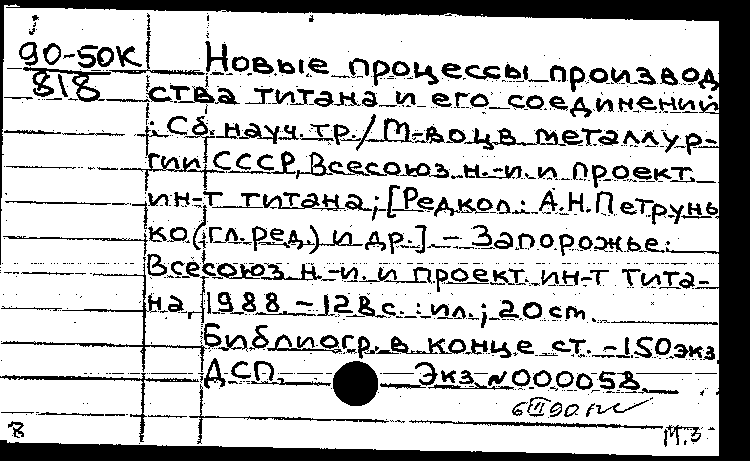 90-50К Новые процессы производ
818 ства титана и его соединений
: Сб. науч. тр. / М-во цв. металлур-
гии СССР, Всесоюз. н.-и. и проект.
ин-т титана; [Редкол.: А.Н.Петрунь
ко (гл. ред.) и др.] - Запорожье:
Всесоюз. н.-и. и проект. ин-т тита-
на, 1988. - 128 с. : ил.; 20 cm.
Библиогр. в конце ст. - 150 экз.
ДСП. Экз. №000058.
В М.З